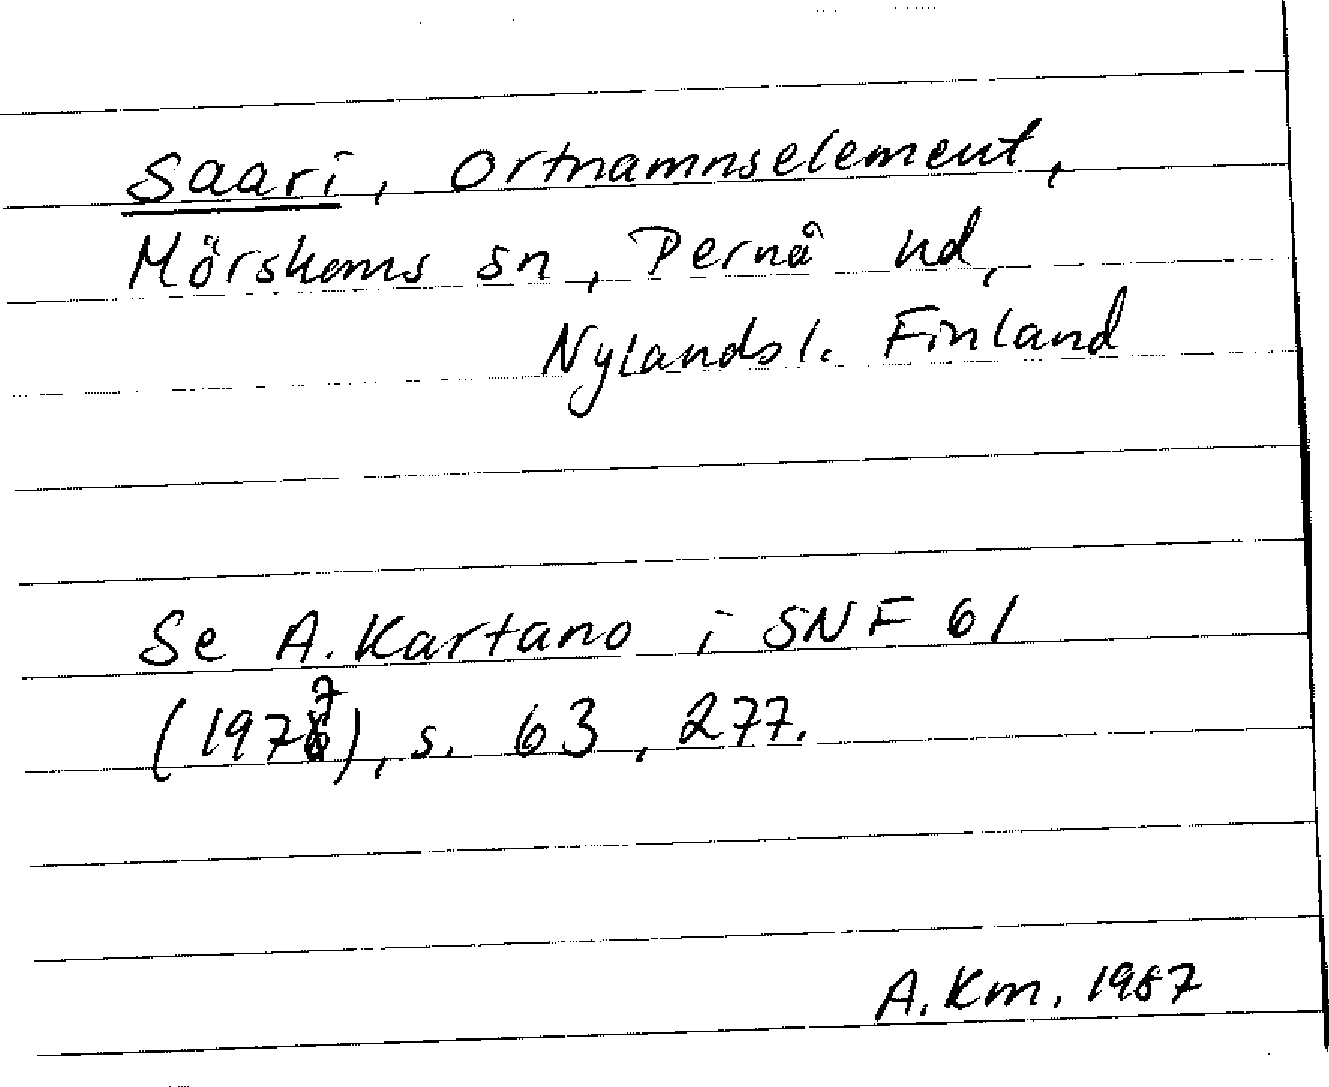 Saari, Ortnamnselement,
Mörskoms sn, Pernå hd,
Nylands l. Finland
Se A. Kartano i SNF 61
(1977), s. 63, 277.
A. Km. 1987